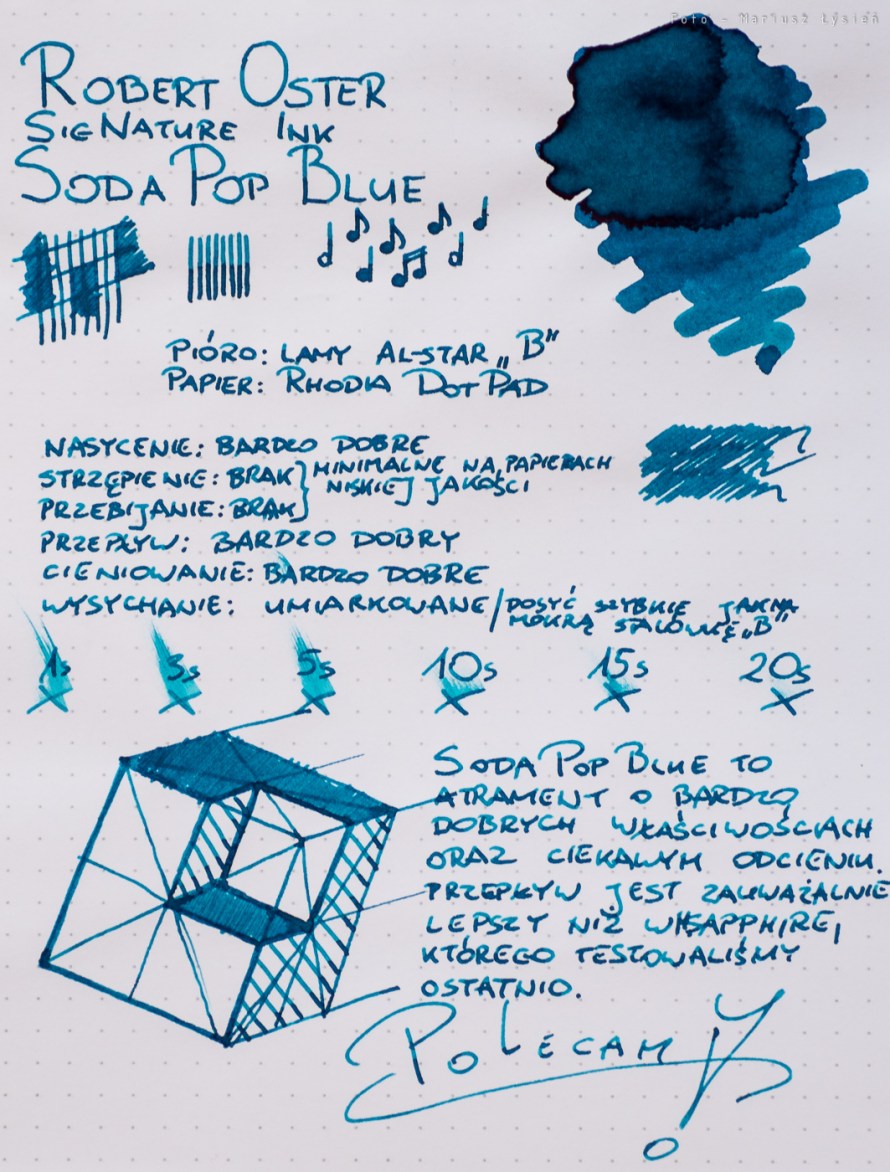 Foto - Mariusz Łysień
ROBERT OSTER
SIGNATURE INK
SODA POP BLUE
PIÓRO: LAMY AL-STAR „B”
PAPIER: RHODIA DOTPAD
NASYCENIE: BARDZO DOBRE
STRZĘPIENIE: BRAK } MINIMALNE NA PAPIERACH
NISKIEJ JAKOŚCI
PRZEBIJANIE: BRAK
PRZEPŁYW: BARDZO DOBRY
CIENIOWANIE: BARDZO DOBRE
WYSYCHANIE: UMIARKOWANE / DOSYĆ SZYBKIE JAK NA
MOKRĄ STALÓWKĘ „B”
1s 3s 5s 10s 15s 20s
SODA POP BLUE TO
ATRAMENT O BARDZO
DOBRYCH WŁAŚCIWOŚCIACH
ORAZ CIEKAWYM ODCIENIU.
PRZEPŁYW JEST ZAUWAŻALNIE
LEPSZY NIŻ SAPPHIRE,
KTÓREGO TESTOWALIŚMY
OSTATNIO.
POLECAM!